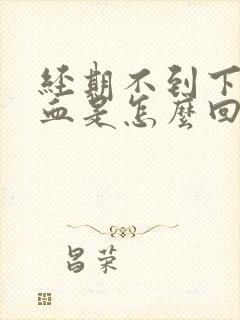 經期不到下
血是怎麼回
昌荣